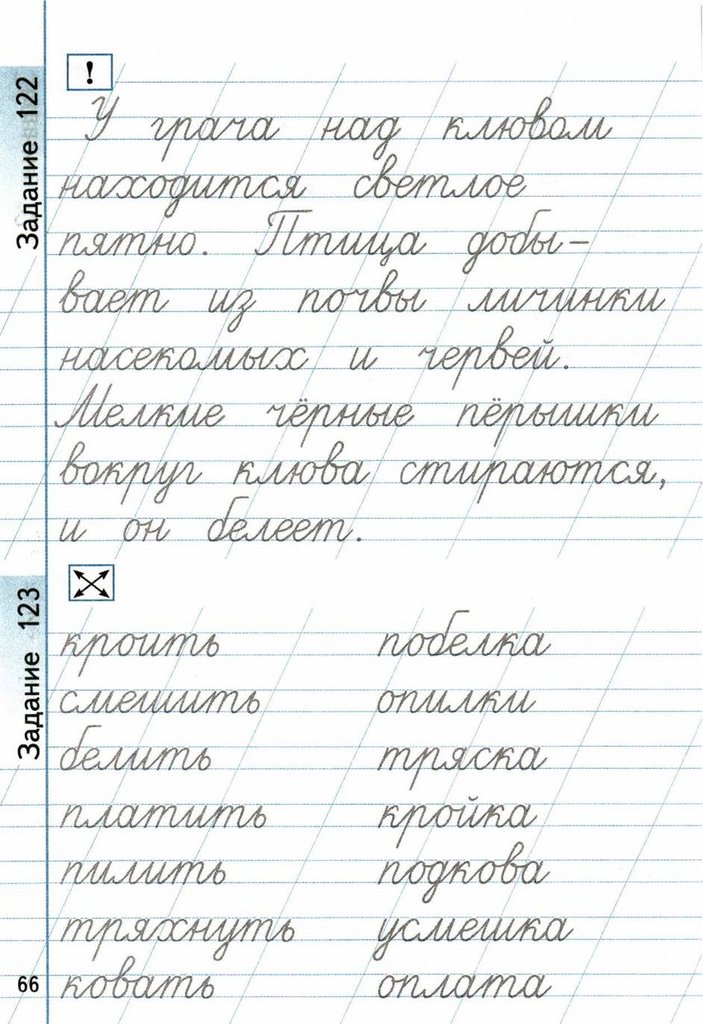 Задание 122
!
У грача над клювом
находится светлое
пятно. Птица добы-
вает из почвы личинки
насекомых и червей.
Мелкие чёрные пёрышки
вокруг клюва стираются,
и он белеет.
Задание 123
кроить побелка
смешить опилки
белить тряска
платить кройка
пилить подкова
тряхнуть усмешка
ковать оплата
66